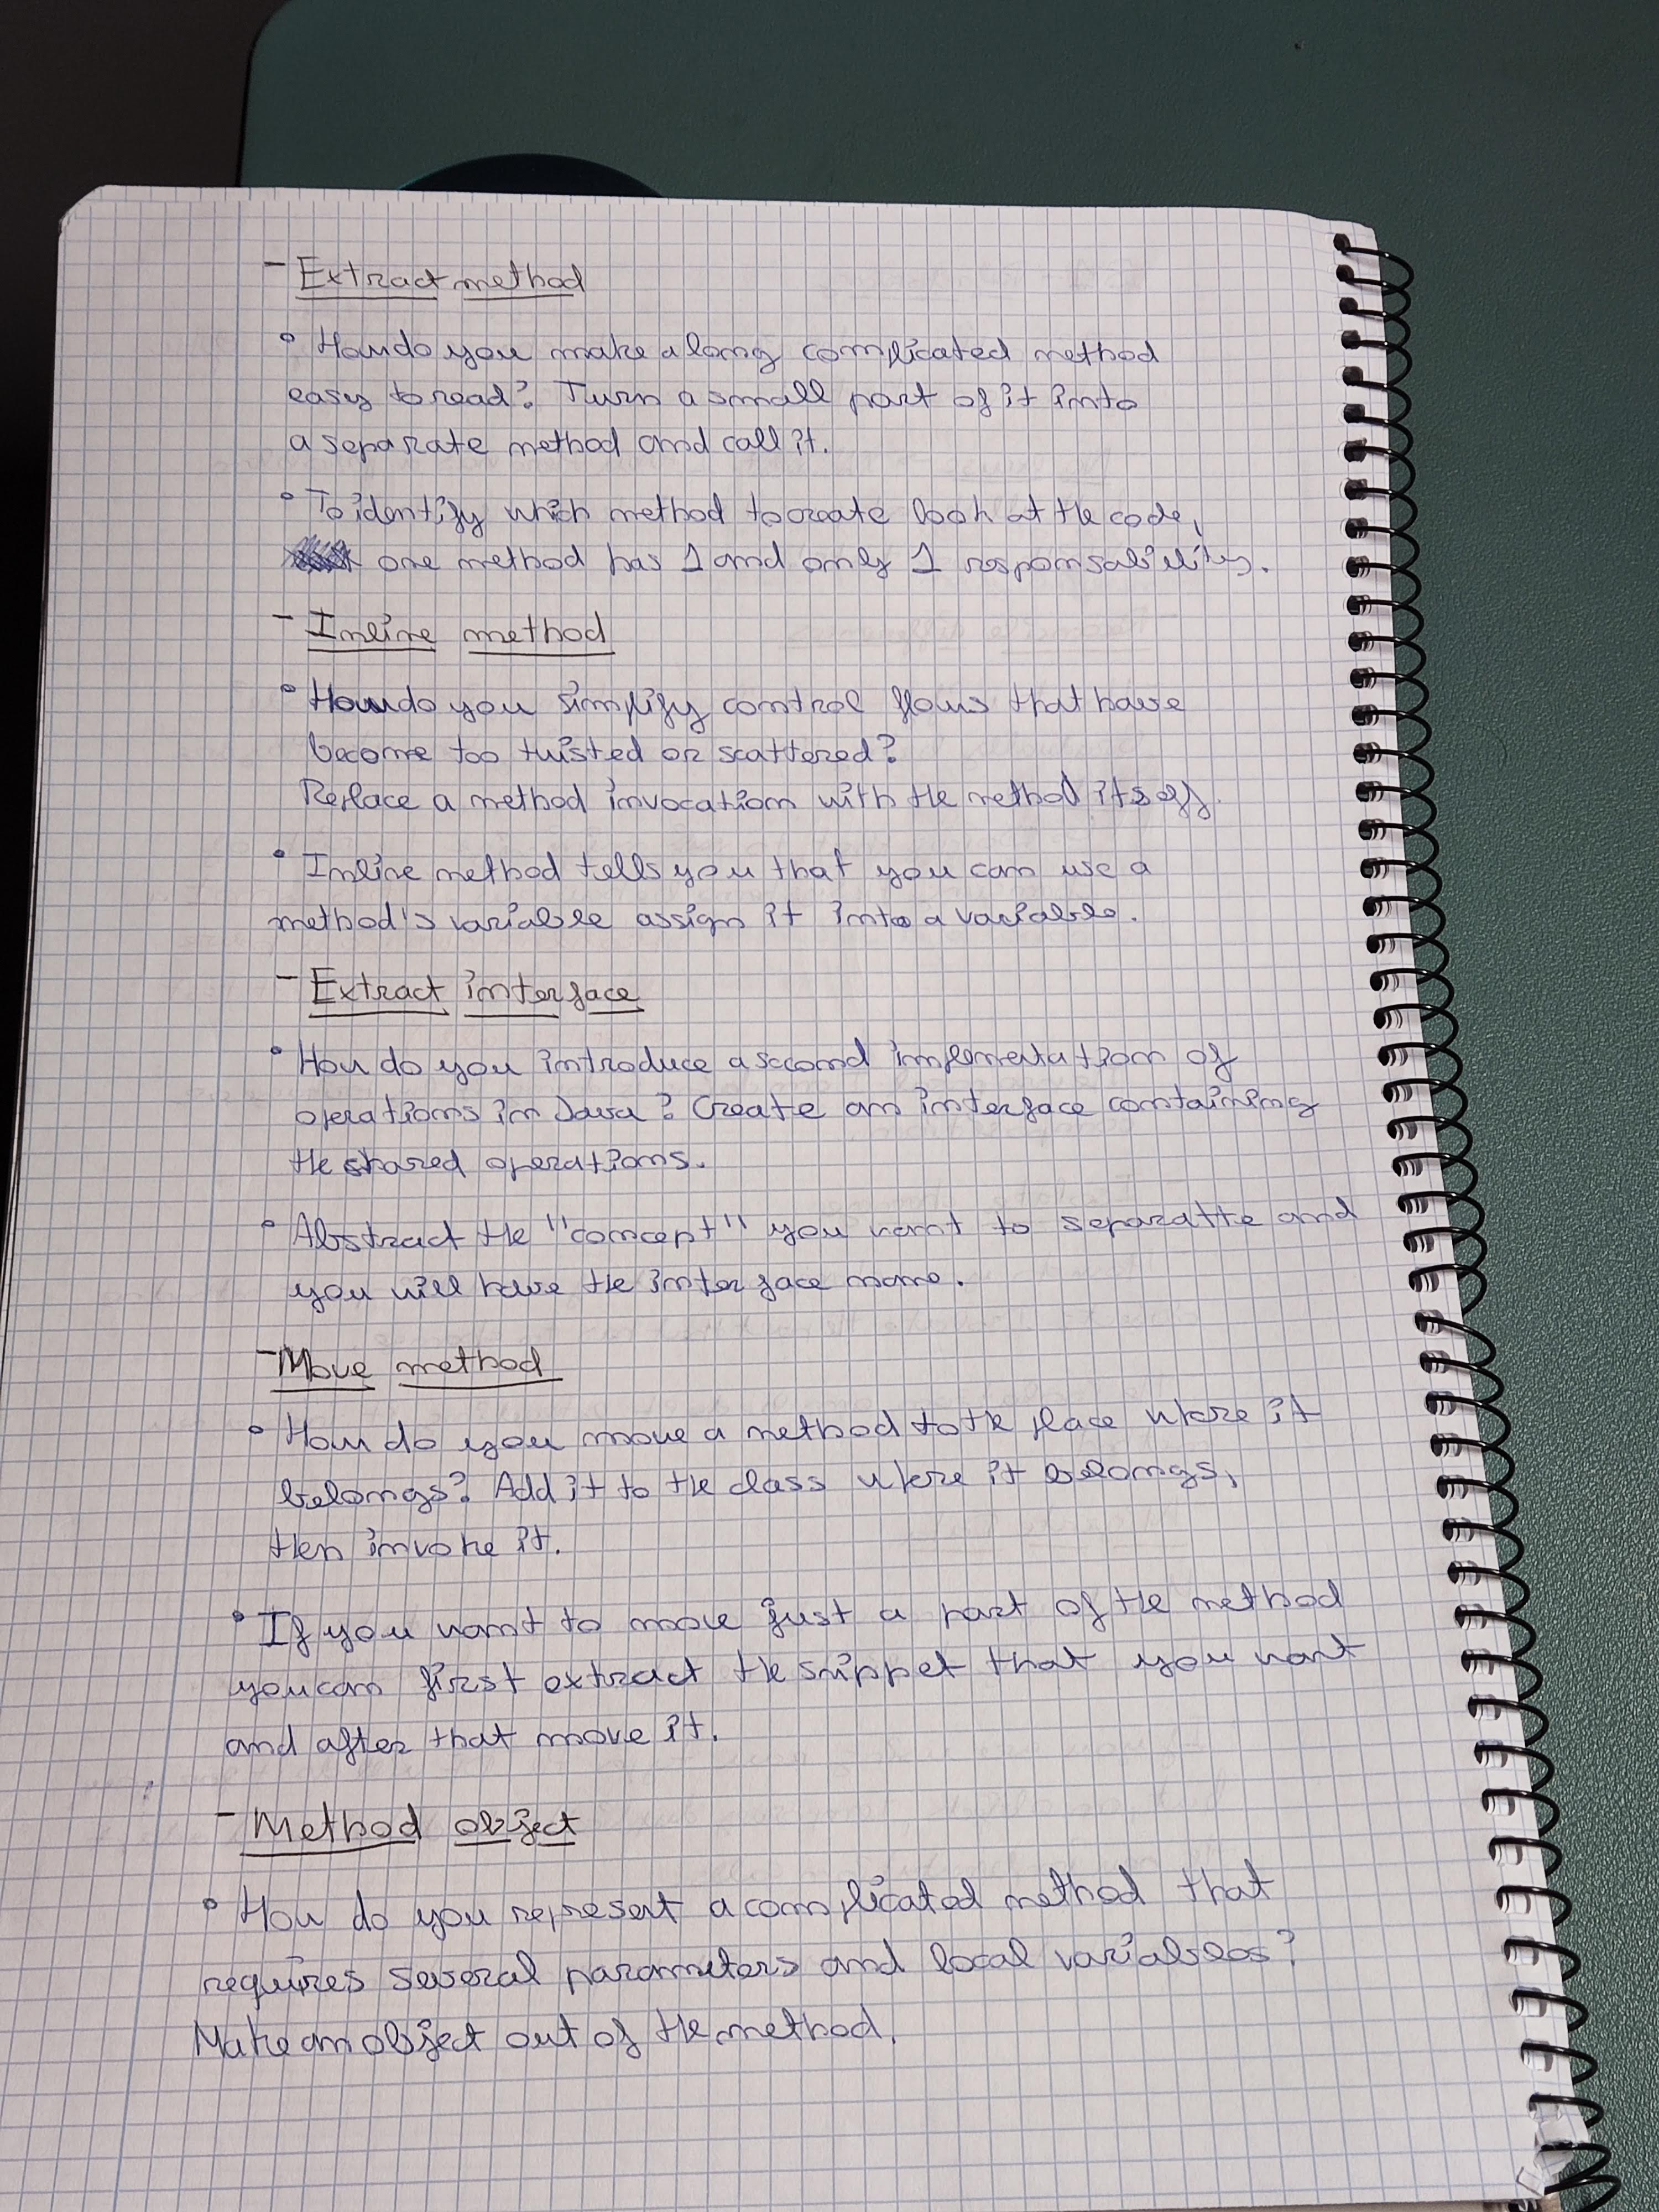 - Extract method
• How do you make a long complicated method
easy to read? Turn a small part of it into
a separate method and call it.
• To identify which method to create look at the code,
one method has 1 and only 1 responsability.
- Inline method
• How do you simplify control flows that have
become too twisted or scattered?
Replace a method invocation with the method itself.
• Inline method tells you that you can use a
method's variable assign it into a variable.
- Extract interface
• How do you introduce a second implementation of
operations in Java? Create an interface containing
the shared operations.
• Abstract the "concept" you want to separatte and
you will have the interface name.
- Move method
• How do you move a method to the place where it
belongs? Add it to the class where it belongs,
then invoke it.
• If you want to move just a part of the method
you can first extract the snippet that you want
and after that move it.
- Method object
• How do you represent a complicated method that
requires several parameters and local variables?
Make an object out of the method.